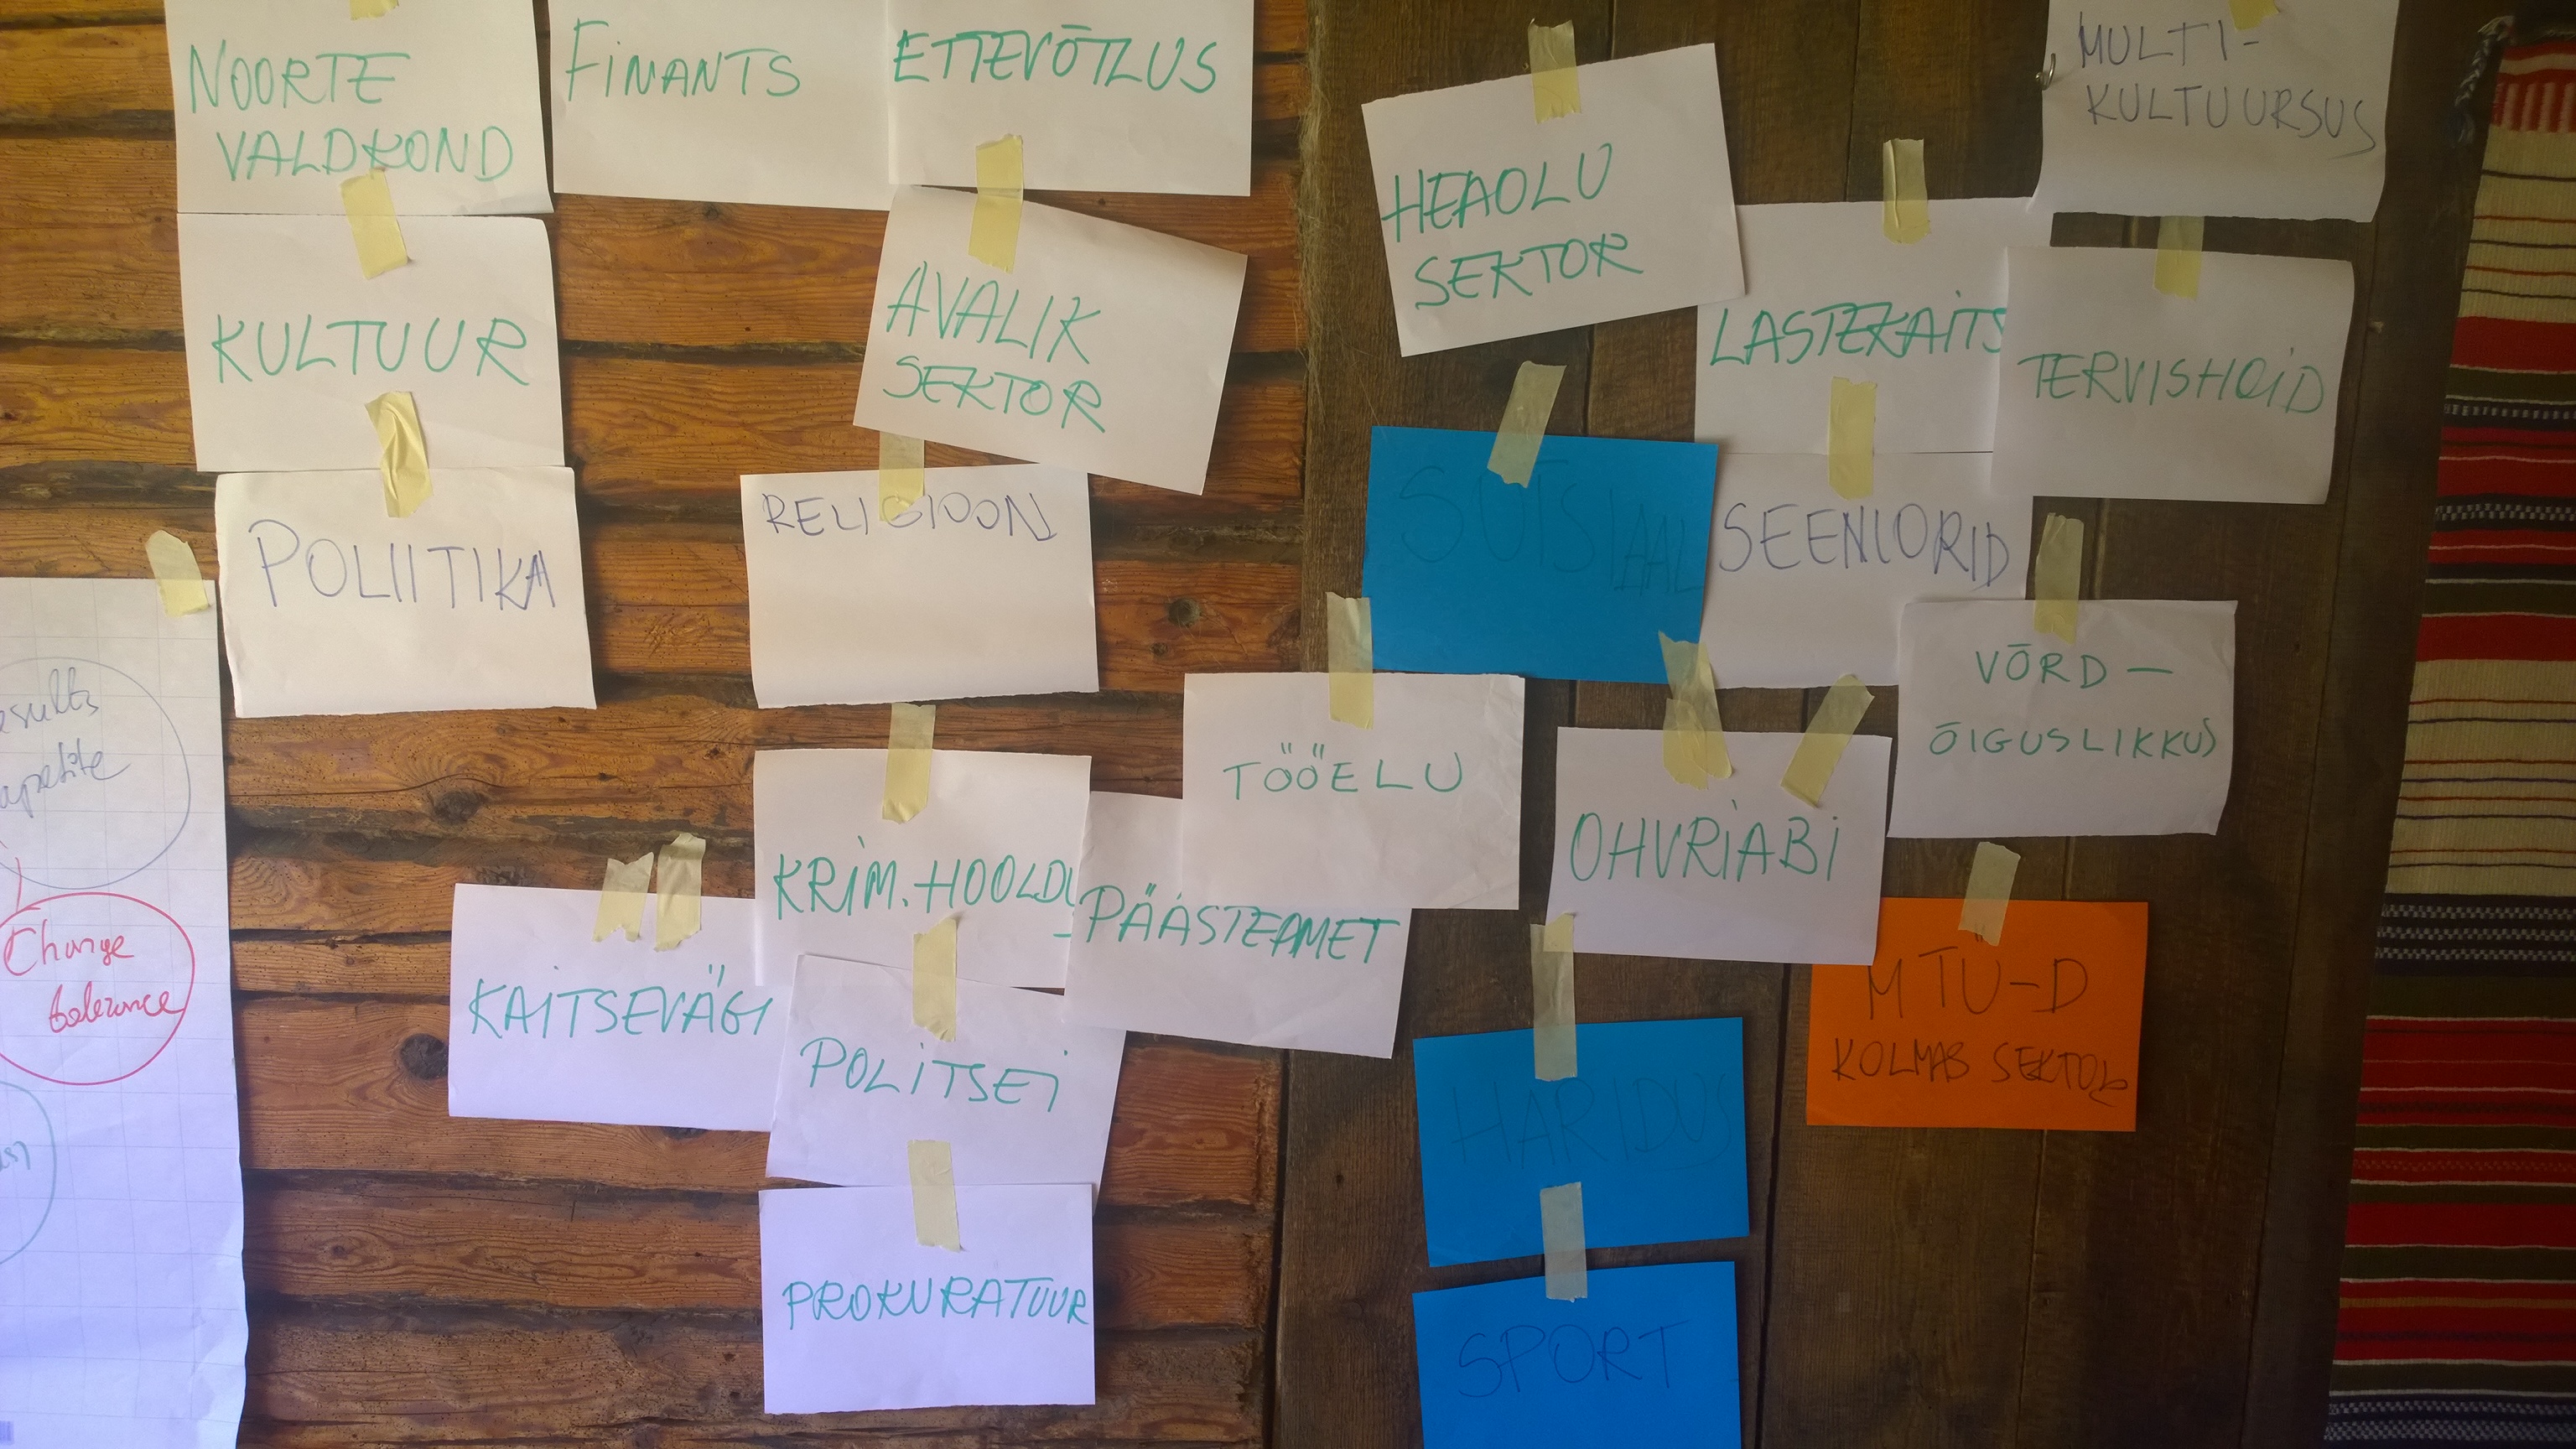 NOORTE
VALDKOND
FINANTS
ETTEVÕTLUS
KULTUUR
AVALIK
SEKTOR
POLIITIKA
RELIGIOON
KRIM. HOOLDU
-
PÄÄSTEAMET
KAITSEVÄGI
POLITSEI
PROKURATUUR
HEAOLU
SEKTOR
MULTI-
KULTUURSUS
LASTEKAITS
TERVISHOID
SOTSIAAL
SEENIORID
VÕRD-
ÕIGUSLIKKUS
TÖÖELU
OHVRIABI
MTÜ-D
KOLMAS SEKTOR
HARIDUS
SPORT
Change
tolerance